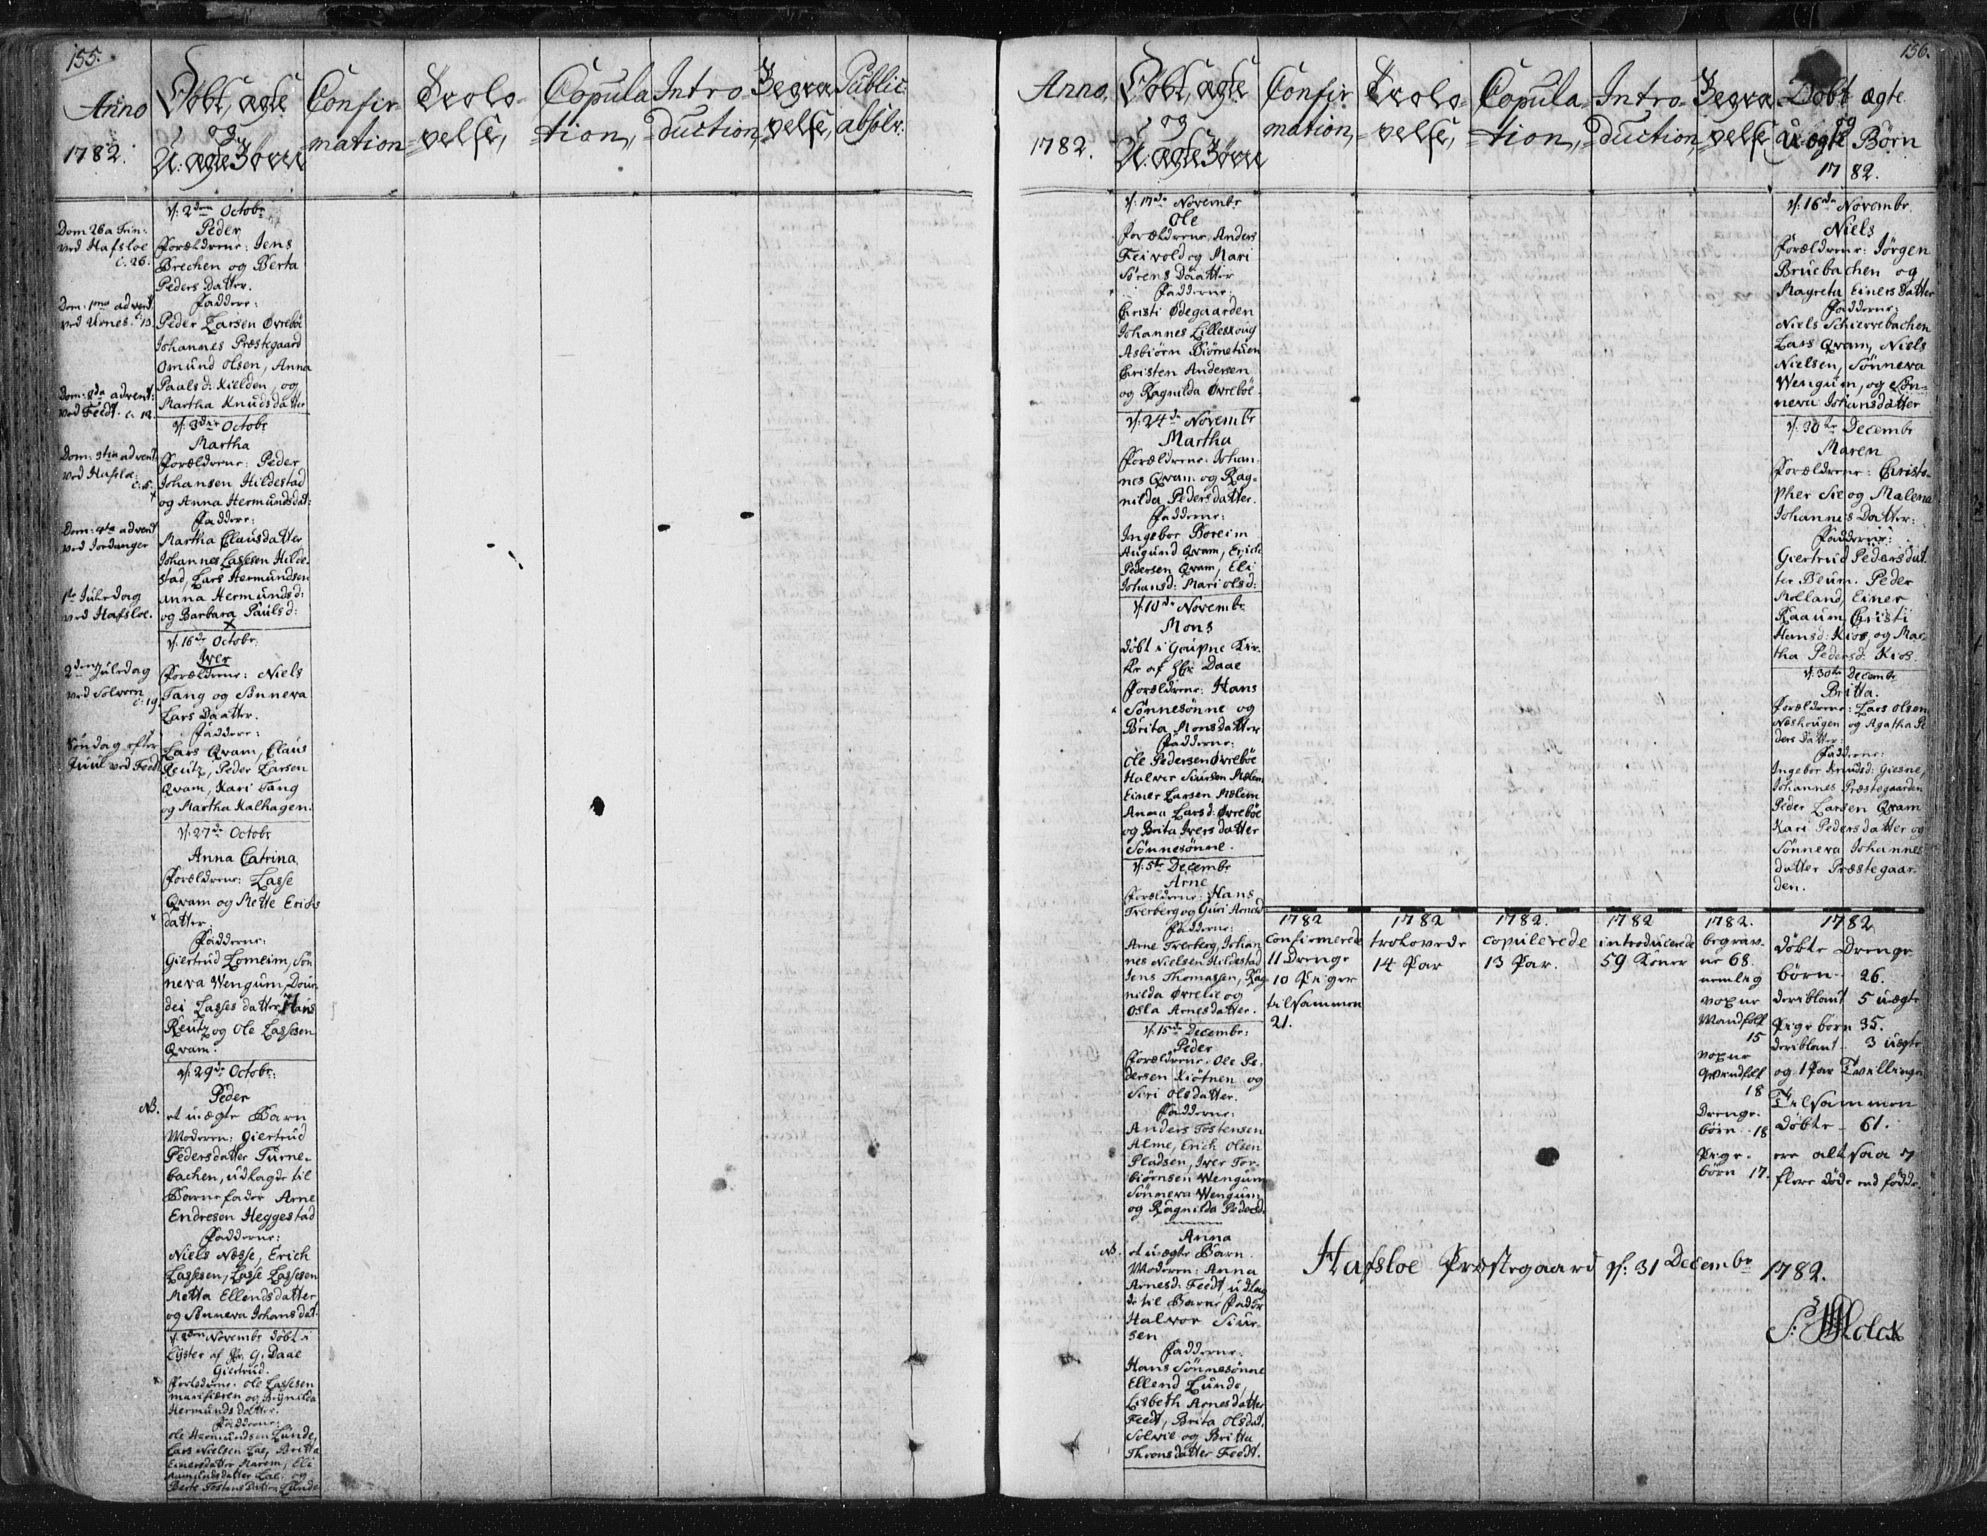 155.
Anno
1782.
Döbt, ægte
og
U: ægte Börn
Confir-
mation
Trolo-
velse,
Copula
tion,
Intro-
duction,
Begra
velse,
Public
absolv:
Dom 26 a Trin:
ved Hafsloe
c. 26.
Dom: 1ma advent
ved Urnes. c. 13
Dom: 2da advent:
ved Feedt. c. 12.
Dom: 3tia advent
ved Hafsloe.
c. 5.
Dom: 4ta advent
ved Jordanger
1te Juledag
ved Hafsloe.
2den Juledag
ved Solvorn
c. 19.
Söndag efter
Juul ved Feedt
d: 2den Octobr
Peder
Forældrene: Jens
Brechen og Berta
Peders Datter.
Faddere:
Peder Larsen Øvreböe
Johannes Præstegaard
Omund Olsen, Anna
Paals d: Kielden, og
Martha Knudsdatter
d: 3die Octobr
Martha
Forældrene: Peder
Johansen Hildestad
og Anna Hermundsdat:
Faddere:
Martha Clausdatter
Johannes Lassesen Hilde-
stad, Lars Hermundsen
Anna Hermundsd:
og Barbara Paulsd:
d: 16de Octobr.
Iver
Forældrene: Niels
Tang og Sönneva
Lars Daatter.
Faddere:
Lars Qvam, Claus
Reutz, Peder Larsen
Qvam, Kari Tang
og Martha Kalhagen.
d: 27de Octobr
Anna Catrina
Forældrene: Lasse
Qvam og Mette Erichs
datter
Fadderne:
Giertrud Lomeim, Sön
neva Wengum, Dour
dei Lasses datter, Hans
Reutz og Ole Lassesen
Qvam.
d: 29de Octobr:
Peder
NB. et uægte Barn
Moderen: Giertrud
Pedersdatter Turne-
bachen, udlagde til
Barnefader Arne
Endresen Heggestad
Fadderne:
Niels Næsse, Erich
Lassesen, Lasse Lassesen
Metta Ellendsdatter
og Sönneva Johansdat:
November döbt i
Lyster af Hr. G. Daae
Giertrud.
Forældrene: Ole Lassesen
og Brynilda
Hermunds datter.
Fadderne:
Ole Hermundsen Lunde,
Lars Nielsen Lae, Britta
Einersdatter Marem, Eli
Aamundsdatter Lae, og
Berte Tostensdatter Lunde
156.
Anno,
1782.
Döbt, ægte
og
U: ægte Börn
Confir
mation,
Trolo-
velse,
Copula-
tion,
Intro-
duction,
Begra
velse
Döbt ægte
og
U: ægte Börn
1782.
d: 17de Novembr
Ole
Forældrene, Anders
Feivold og Mari
Sörens Daatter
Fadderne:
Christi Ødegaarden
Johannes Lilleskoug
Asbiörn Biörnetuen
Christen Andersen
og Ragnilda Øvreböe.
d: 24de Novembr
Martha
Forældrene: Johan-
nes Qvam og Rag-
nilda Pedersdatter.
Fadderne:
Ingebor Boreim
Augund Qvam, Erich
Pedersen Qvam, Eli
Johansd: Mari Olsd:
d: 10de Novembr.
Mons
döbt i Goupne Kir-
ke af Hr Daae
Forældrene: Hans
Sönnesönne og
Brita Monsdatter
Fadderne:
Ole Pedersen Øvreböe
Halvor Siursen Mælem
Einer Larsen Mælem
Anna Larsd: Øvreböe
og Brita Ivers datter
Sönnesönne.
d: 5te Decembr
Arne
Forældrene: Hans
Tverberg og Guri Arnesd
Fadderne:
Arne Tverberg, Johan
nes Nielsen Hildestad
Jens Thomassen, Rag
nilda Øvrelie og
Osla Arnesdatter.
d: 15de Decembr:
Peder
Forældrene: Ole Pe-
dersen Kiötnen og
Siri Olsdatter.
Fadderne:
Anders Tostensen
Alme, Erich Olsen
Pladsen, Iver Tor-
biörnsen Wengum
Sönneva Wengum
og Ragnilda Pedersd.
Anna
NB. et uægte Barn.
Moderen: Anna
Arnesd: Feedt udlag
de til Barne Fader
Halvor Siur-
sen
Fadderne:
Hans Sönnesönne
Ellend Lunde,
Lisbeth Arnesdatter
Feedt, Brita Olsdat.
Solvie og Britta
Thronsdatter Feedt.
d: 16de Novembr.
Niels
Forældrene: Jörgen
Bruebachen og
Magreta Einers Datter
Fadderne:
Niels Schierrebachen
Lars Qvam, Niels
Nielsen, Sönneva
Wengum, og Sön-
neva Johansdatter
d: 30te Decembr
Maren
Forældrene: Christo-
pher Sie og Malena
Johannes Datter:
Fadderne:
Giertrud Pedersdat
ter Beum. Peder
Molland, Einer
Kaaum, Christi
Hansd: Kios, og Mar-
tha Pedersd: Kios.
d: 30te Decembr
Britta.
Forældrene: Lars Olsen
Næshougen og Agatha Pe
ders Datter:
Fadderne:
Ingebor Knudsd: Giesne,
Johannes Præstegaarden
Peder Larsen Qvam
Kari Pedersdatter og
Sönneva Johannes
datter Præstegaar-
den.
1782
confirmerede
11 Drenge
10 Piger
tilsammen
21.
1782
trolovede
14 Par
1782.
copulerede
13 Par.
1782
introducerede
59 Koner
1782.
begrav-
ne 68.
nemlig
voxne
Mandfolk
15
voxne
Qvindfolk
18
Drenge-
börn 18
Pige-
börn 17.
1782
döbte Drenge
börn 26.
deriblant 5 uægte
Pige börn 35.
deriblant 3 uægte
og 1 Par Tvillinger
Tilsammen
döbte 61.
ere altsaa 7
flere döde end födde.
Hafsloe Præstegaard d: 31 Decembr 1782.